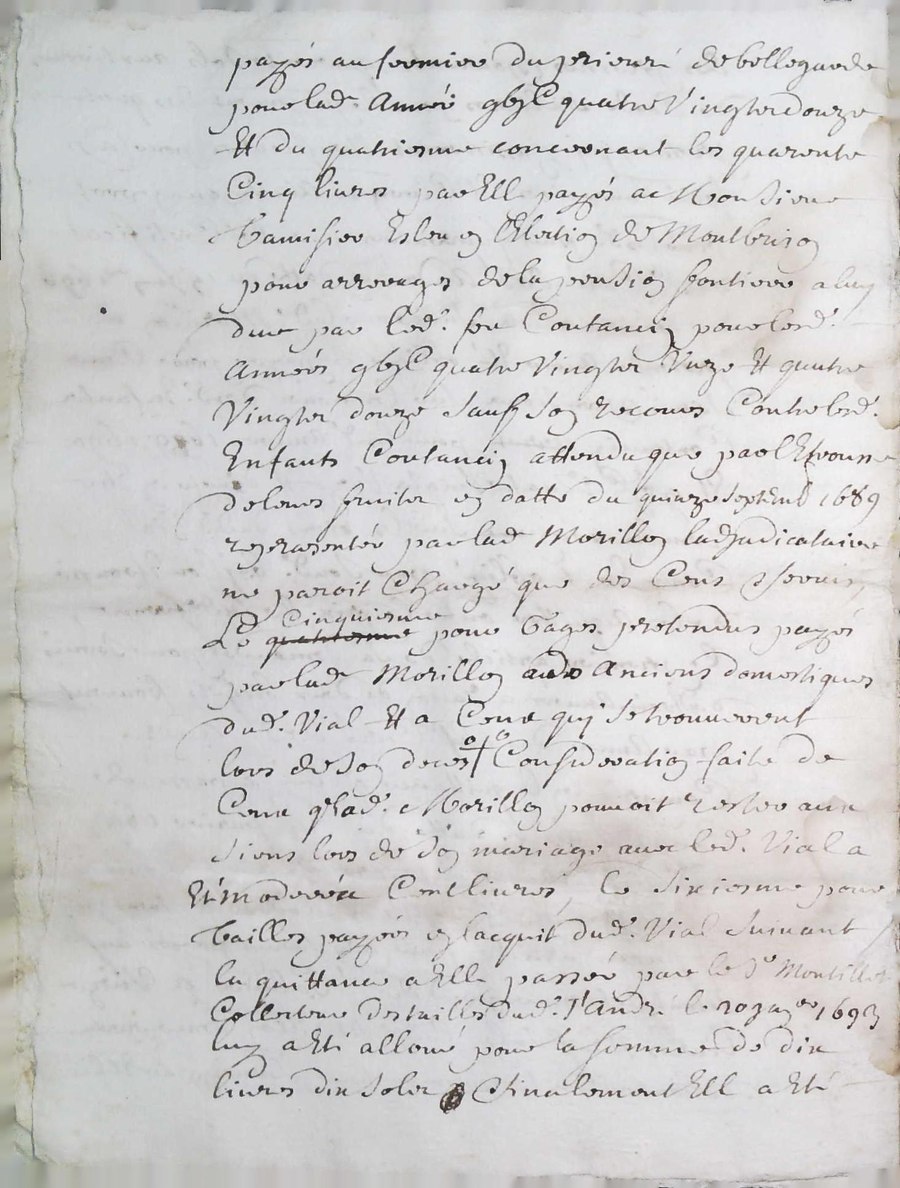 payés au fermier du prieuré de bellegarde
pour lad. Année gbjC quatre Vingtz douze
Et du quatriesme concernant les quarente
Cinq livres par Ell payés a Monsieur
Esleu en l'Election de Montbrison
pour arrerages de la pension fontiere a luy
due par led. feu Coutancin pour lesd.
Années gbjC quatre Vingtz Unze Et quatre
Vingtz douze sauf son recours Contre lesd.
Enfants Coutancin attendu que par
de leurs fruitz en datte du quinze septemb 1689
representée par lad Morillon ladjudicataire
ne paroit Chargé que des Cens & servis,
Le quatriesme Cinquiesme pour Gages pretendus payés
par lad Morillon aux Anciens domestiques
dud. Vial Et a Ceux qui se trouverent
lors de son deces Consideration faite de
Ceux q lad. Morillon pouvoit rester aux
siens lors de son mariage avec led. Vial a
Eté moderéa Cent livres, le sixiesme pour
Tailles payées en lacquit dud. Vial suivant
la quittance a Elle passée par le Sr Montillet
Collecteur des tailles dud. St André le 1693
luy a Eté alloué pour la somme de dix
livres dix solz & finalement Ell a Eté